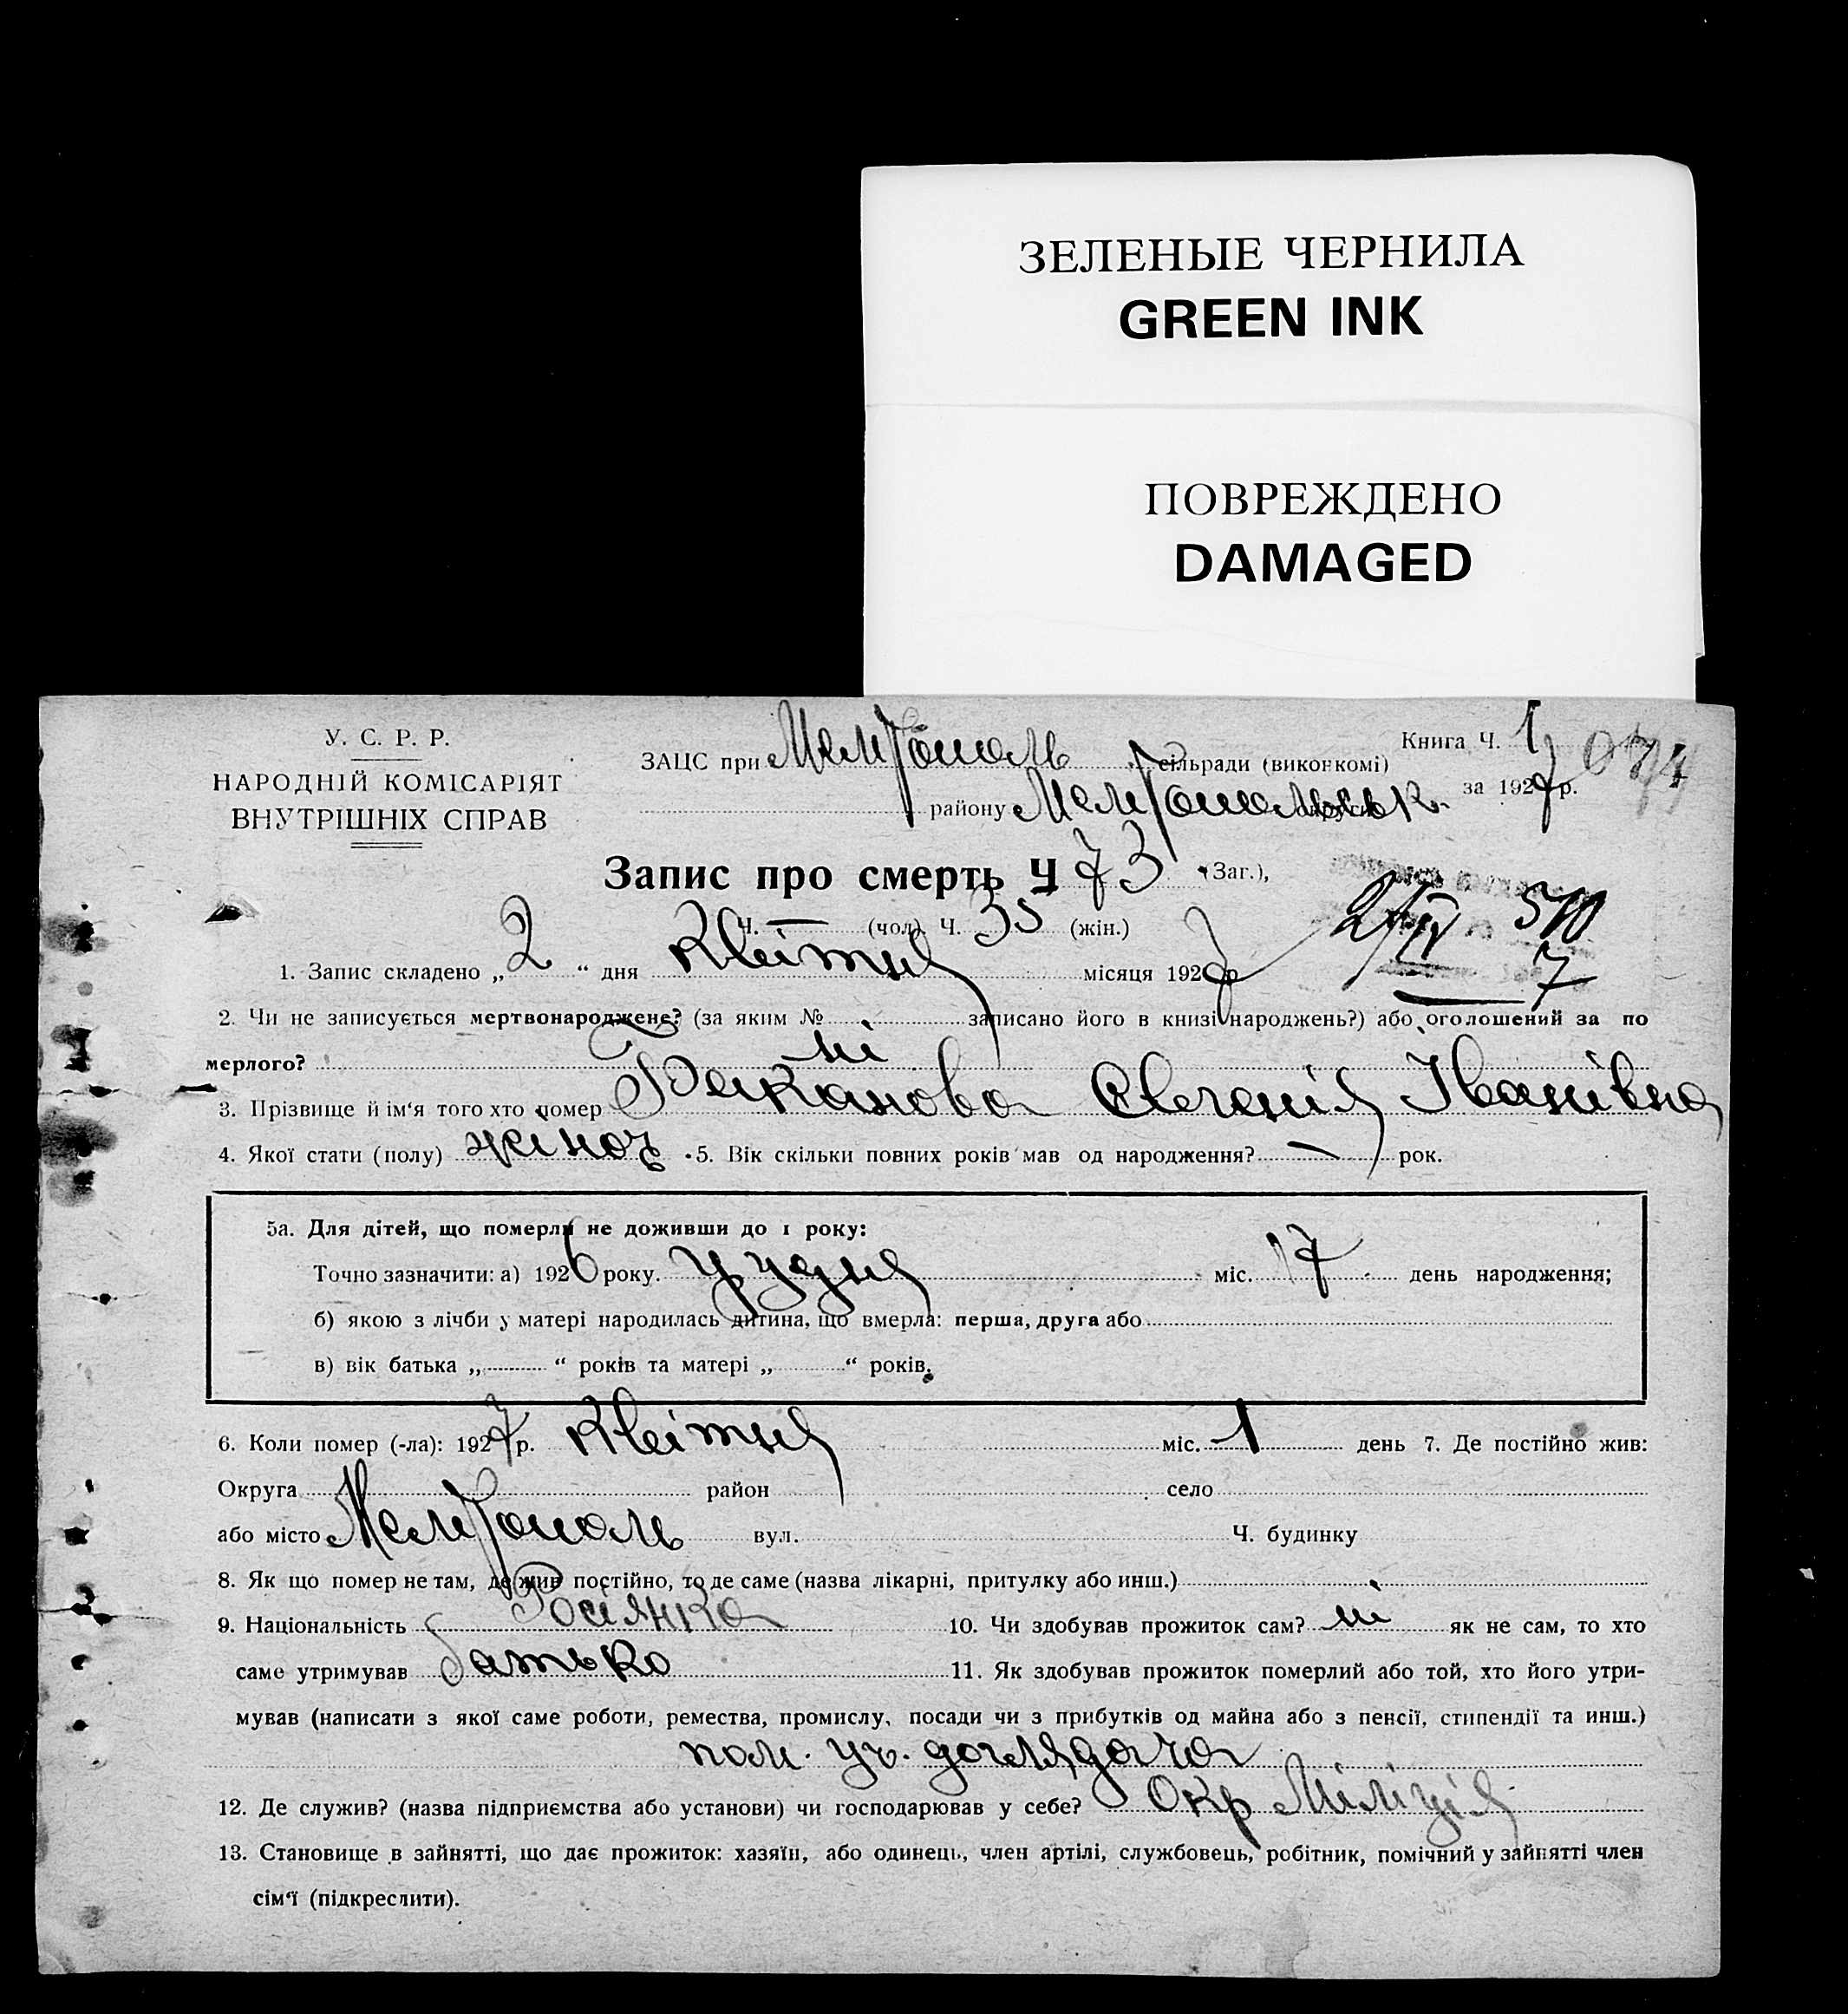 ЗЕЛЕНЫЕ ЧЕРНИЛА
GREEN INK
ПОВРЕЖДЕНО
DAMAGED
У. С. Р. Р.
НАРОДНІЙ КОМІСАРІЯТ
ВНУТРІШНІХ СПРАВ
ЗАЦС при Мелітополь сільради (виконкомі)
району Мелітопольськ. округи
Книга Ч. 1
за 1927 р.
Запис про смерть Ч 73 (Заг.),
Ч. — (чол). Ч. 35 (жін.)
2/IV 510
7
1. Запис складено „ 2 “ дня Квітня місяця 1927 р
2. Чи не записується мертвонароджене? (за яким № записано його в книзі народжень?) або оголошений за по
мерлого? ні
3. Прізвище й ім'я того хто помер Баканова Євгенія Іванівна
4. Якої стати (полу) жіноч 5. Вік скільки повних років мав од народження? — рок.
5а. Для дітей, що померли не доживши до 1 року:
Точно зазначити: а) 1926 року. грудня міс. 17 день народження;
б) якою з лічби у матері народилась дитина, що вмерла: перша, друга або
в) вік батька „ “ років та матері „ “ років.
6. Коли помер (-ла): 1927 р. Квітня міс. 1 день 7. Де постійно жив:
Округа район село
або місто Мелітополь вул. Ч. будинку
8. Як що помер не там, де жив постійно, то де саме (назва лікарні, притулку або инш.)
9. Національність Росіянка 10. Чи здобував прожиток сам? ні як не сам, то хто
саме утримував батько 11. Як здобував прожиток померлий або той, хто його утри-
мував (написати з якої саме роботи, ремества, промислу, посади чи з прибутків од майна або з пенсії, стипендії та инш.)
пом. уч. доглядача
12. Де служив? (назва підприємства або установи) чи господарював у себе? Окр Міліція
13. Становище в зайнятті, що дає прожиток: хазяїн, або одинець, член артілі, службовець, робітник, помічний у зайнятті член
сім'ї (підкреслити).